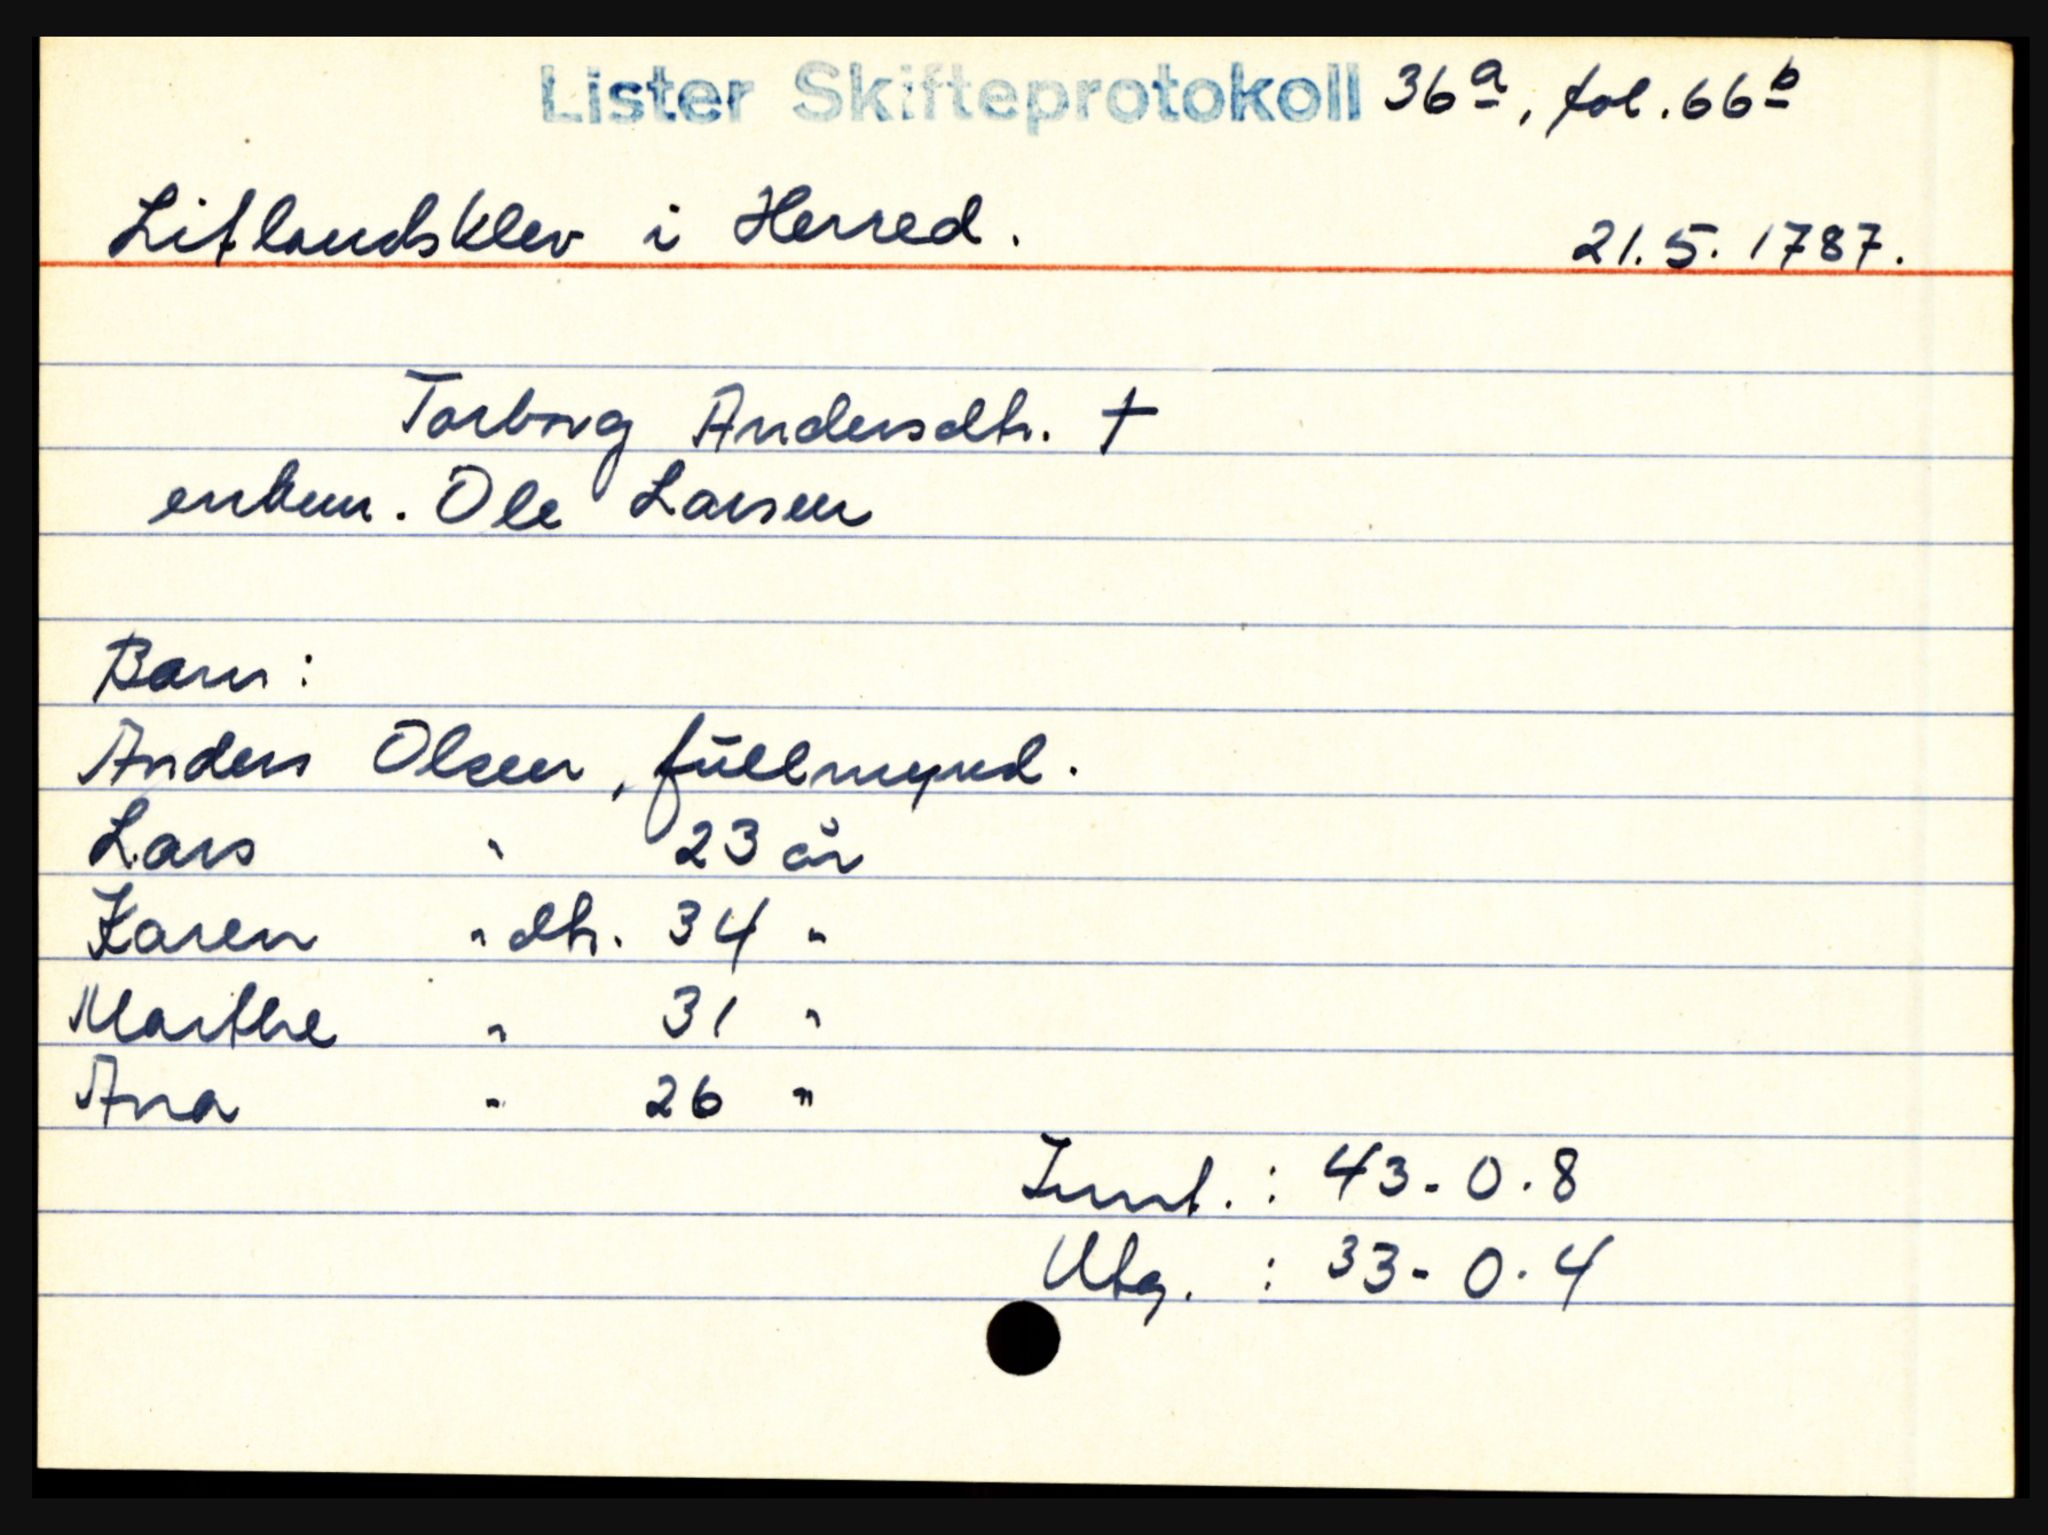 Lister Skifteprotokoll 36a, fol. 66b
Litlandsklev i Herred. 21.5.1787.
Torborg Andersdtr. †
enkem. Ole Larsen
Barn:
Anders Olsen, fullmynd.
Lars " 23 år
Karen " dtr. 34 "
Marthe " 31 "
Ana " 26 "
Innt. : 43-0.8
Utg. : 33-0.4